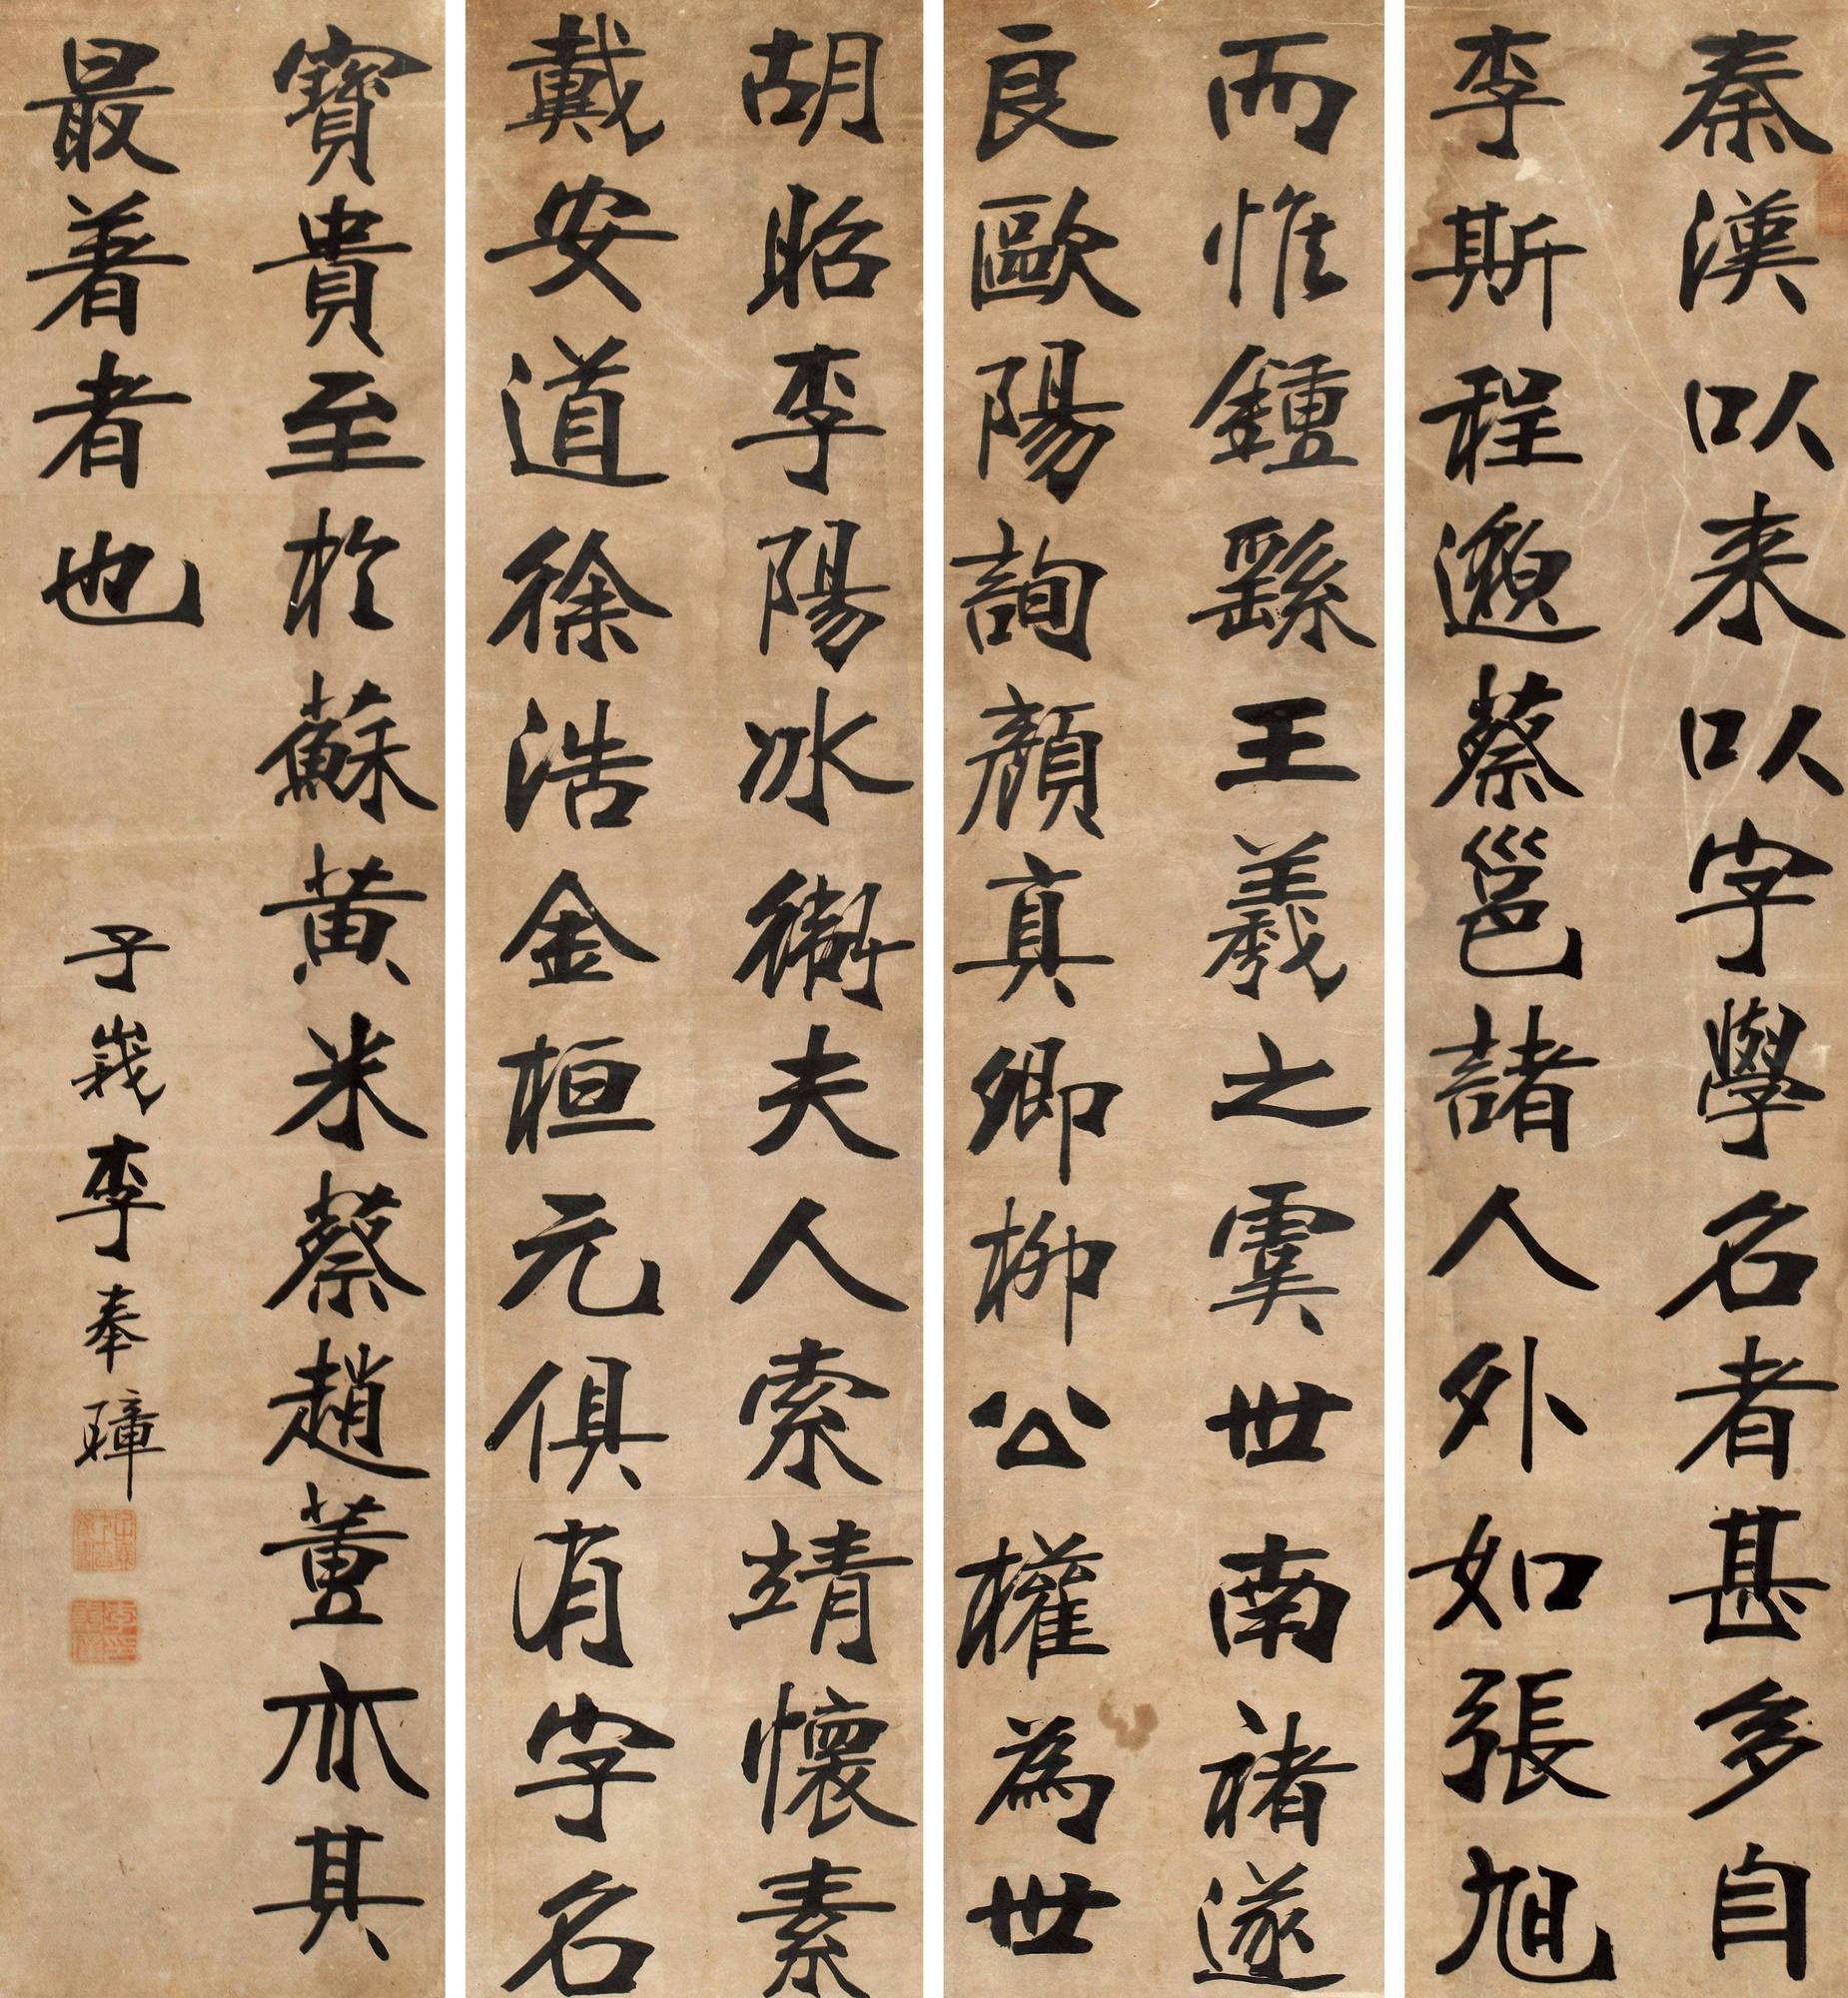 秦漢以来以字學名者甚多自
李斯程邈蔡邕諸人外如張旭
胡昭李陽冰衛夫人索靖懷素
戴安道徐浩金桓元俱有字名
而惟鍾繇王羲之虞世南褚遂
良歐陽詢顏真卿柳公權為世
寶貴至於蘇黃米蔡趙董亦其
最著者也
子峩李奉璋